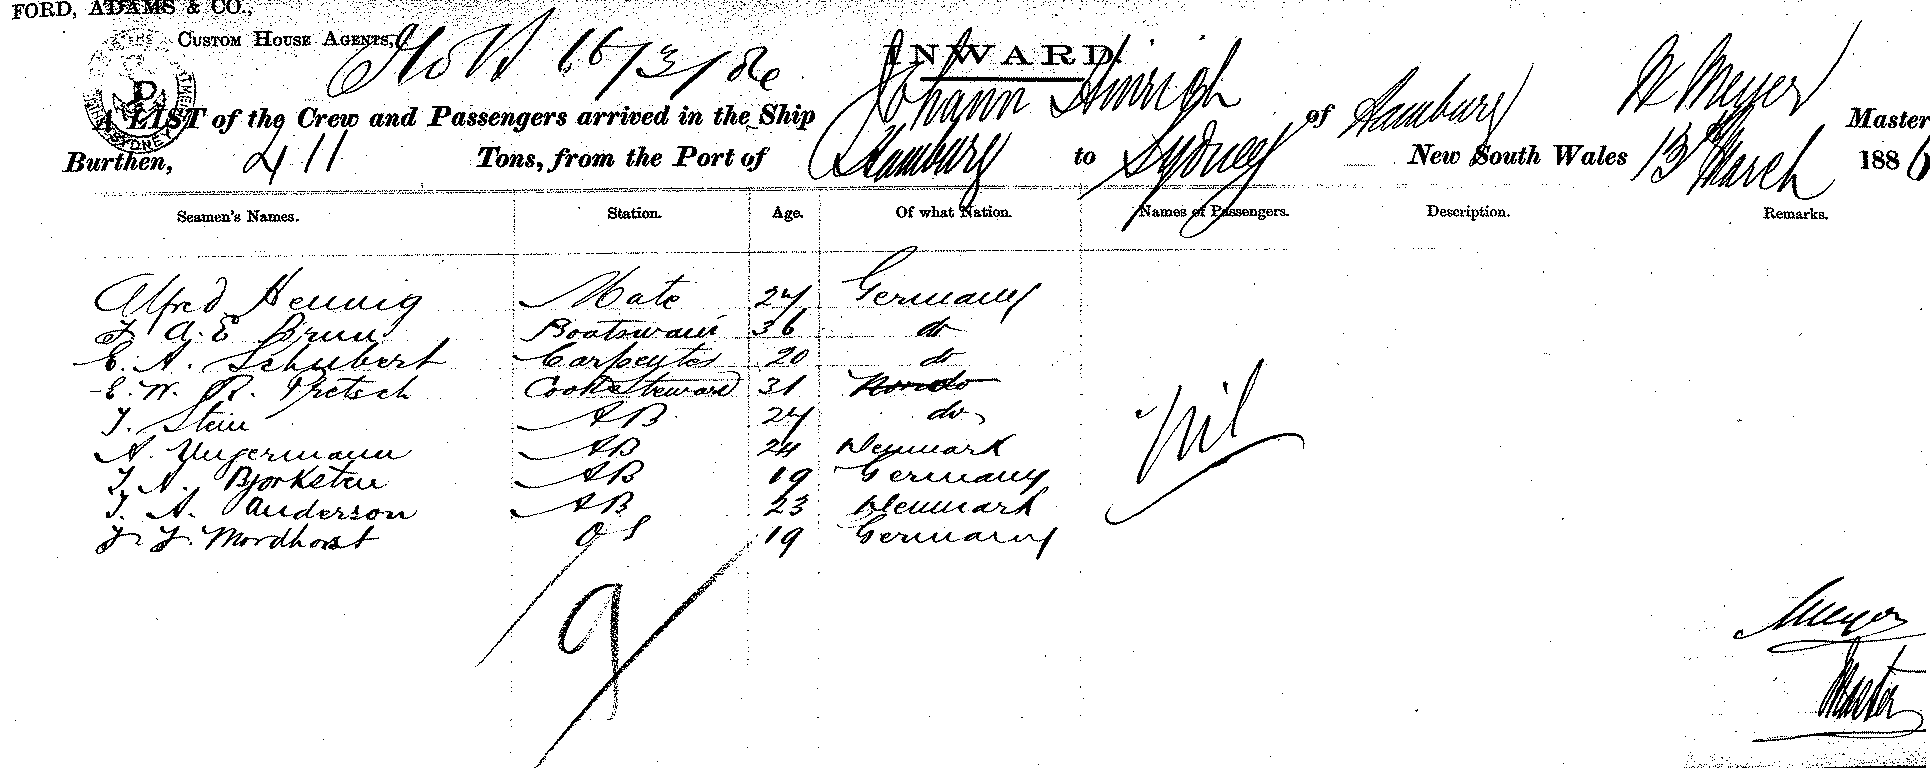 FORD, ADAMS & CO.,
CUSTOM HOUSE AGENTS,
16/3/86
INWARD.
A LIST of the Crew and Passengers arrived in the Ship Johann Hinrich of Hamburg W Meyer Master
Burthen, 411 Tons, from the Port of Hamburg to Sydney New South Wales 13th March 1886
Seamen's Names. Station. Age. Of what Nation. Names of Passengers. Description. Remarks.
Alfred Hennig Mate 27 Germany
A. E. Brun Boatswain 36 do
E. A. Schubert Carpenter 20 do
E. W. R. Pretsch Cook & Steward 31 do
Stein AB 27 do
A. Ungermann AB 24 Denmark
A. Bjorksten AB 19 Germany
A. Anderson AB 23 Denmark
Mordhorst OS 19 Germany
Nil
9
Meyer
Master